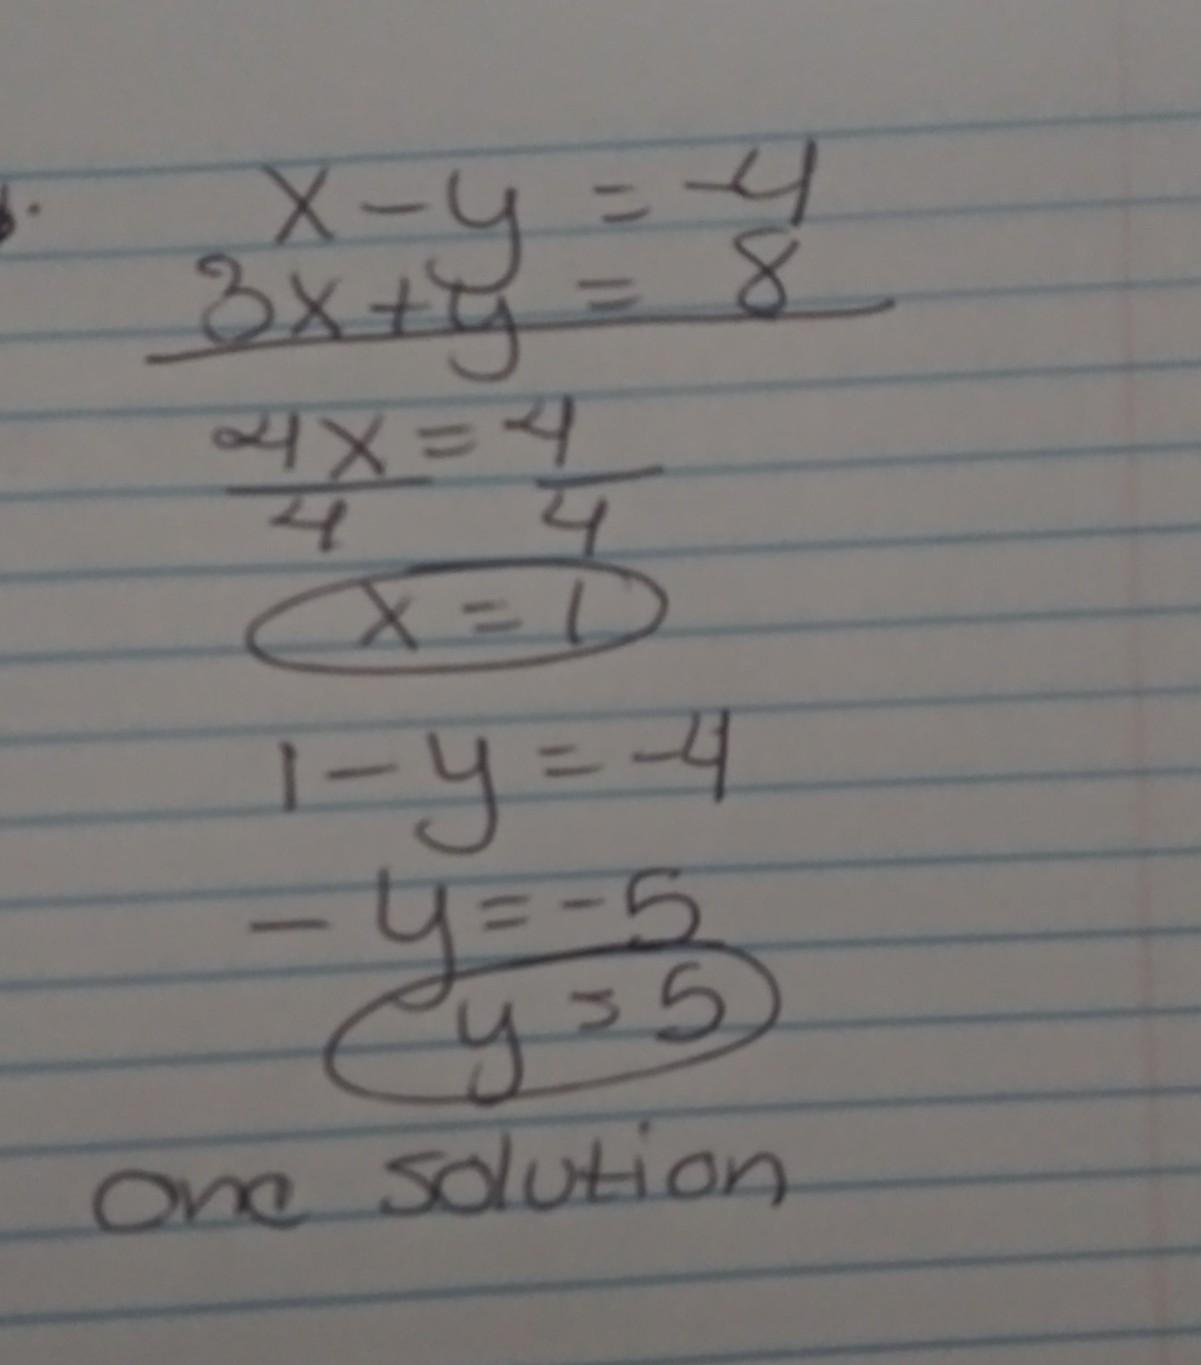 x - y = -4
3x + y = 8
4x = 4
4 4
x = 1
1 - y = -4
- y = -5
y = 5
One solution